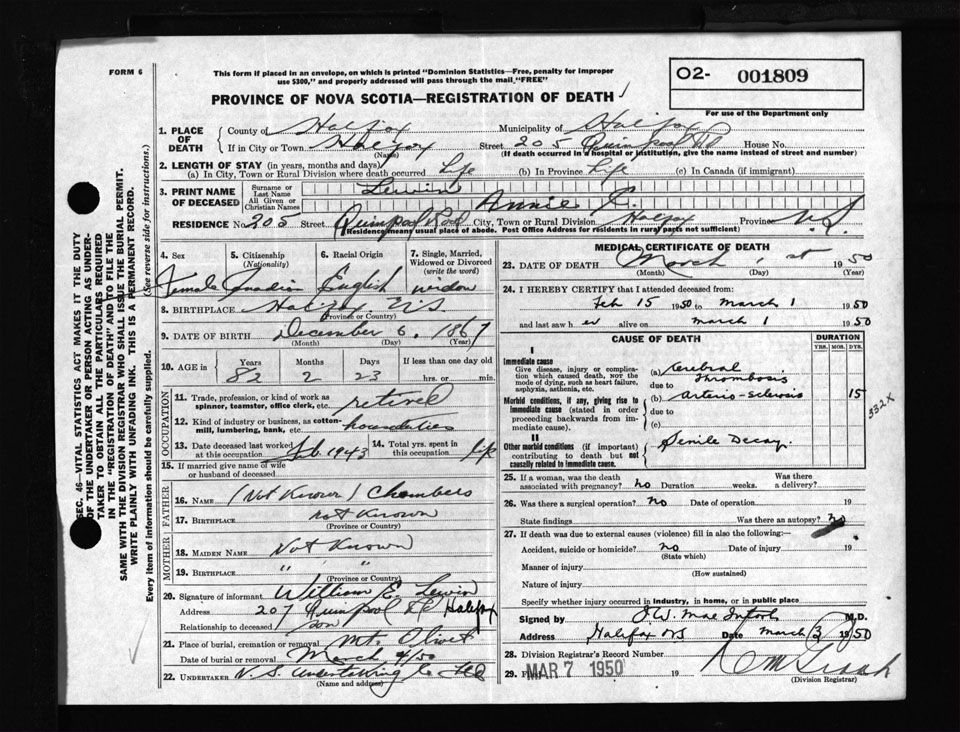 FORM 6
This form if placed in an envelope, on which is printed "Dominion Statistics—Free, penalty for improper
use $300," and properly addressed will pass through the mail "FREE"
O2- 001809
For use of the Department only
PROVINCE OF NOVA SCOTIA—REGISTRATION OF DEATH
1. PLACE OF DEATH { County of Halifax Municipality of Halifax
If in City or Town Halifax Street 205 Quinpool Rd House No.
(Name) (If death occurred in a hospital or institution, give the name instead of street and number)
2. LENGTH OF STAY (in years, months and days)
(a) In City, Town or Rural Division where death occurred Life (b) In Province Life (c) In Canada (if immigrant)
3. PRINT NAME OF DECEASED { Surname or Last Name Lewin
All Given or Christian Names Annie E.
RESIDENCE No. 205 Street Quinpool Road City, Town or Rural Division Halifax Province N.S.
(Residence means usual place of abode. Post Office Address for residents in rural parts not sufficient)
4. Sex 5. Citizenship (Nationality) 6. Racial Origin 7. Single, Married, Widowed or Divorced (write the word)
Female Canadian English widow
8. BIRTHPLACE Halifax N.S.
(Province or Country)
9. DATE OF BIRTH December 6, 1867
(Month) (Day) (Year)
10. AGE in { Years Months Days If less than one day old
82 2 23 hrs. or min.
OCCUPATION
11. Trade, profession, or kind of work as spinner, teamster, office clerk, etc. retired
12. Kind of industry or business, as cotton-mill, lumbering, bank, etc. house duties
13. Date deceased last worked at this occupation Feb 1943 14. Total yrs. spent in this occupation Life
15. If married give name of wife or husband of deceased
FATHER
16. NAME (Not Known) Chambers
17. BIRTHPLACE not Known
(Province or Country)
MOTHER
18. MAIDEN NAME Not Known
19. BIRTHPLACE " "
(Province or Country)
20. Signature of informant William E. Lewin
Address 207 Quinpool Rd Halifax
Relationship to deceased son
21. Place of burial, cremation or removal Mt. Olivet
Date of burial or removal March 4/50
22. UNDERTAKER N. S. Undertaking Co Ltd
(Name and address)
MEDICAL CERTIFICATE OF DEATH
23. DATE OF DEATH March 1st 1950
(Month) (Day) (Year)
24. I HEREBY CERTIFY that I attended deceased from:
Feb 15 1950 to March 1 1950
and last saw her alive on March 1 1950
CAUSE OF DEATH DURATION
YRS. MOS. DYS.
I
Immediate cause
Give disease, injury or complication which caused death, NOT the mode of dying, such as heart failure, asphyxia, asthenia, etc.
(a) Cerebral Thrombosis
due to
Morbid conditions, if any, giving rise to immediate cause (stated in order proceeding backwards from immediate cause).
(b) Arterio-sclerosis 15
due to
(c)
332X
II
Other morbid conditions (if important) contributing to death but not causally related to immediate cause.
Senile Decay.
25. If a woman, was the death associated with pregnancy? no Duration weeks. Was there a delivery?
26. Was there a surgical operation? no Date of operation 19
State findings Was there an autopsy? no
27. If death was due to external causes (violence) fill in also the following:—
Accident, suicide or homicide? no Date of injury 19
(State which)
Manner of injury
(How sustained)
Nature of injury
Specify whether injury occurred in industry, in home, or in public place
Signed by M.D.
Address Halifax NS Date March 3 1950
28. Division Registrar's Record Number
29. MAR 7 1950 19
(Division Registrar)
SEC. 46—VITAL STATISTICS ACT MAKES IT THE DUTY
OF THE UNDERTAKER OR PERSON ACTING AS UNDER-
TAKER TO OBTAIN ALL THE PARTICULARS REQUIRED
IN THE "REGISTRATION OF DEATH" AND TO FILE THE
SAME WITH THE DIVISION REGISTRAR WHO SHALL ISSUE THE BURIAL PERMIT.
WRITE PLAINLY WITH UNFADING INK. THIS IS A PERMANENT RECORD.
Every item of information should be carefully supplied. (See reverse side for instructions.)